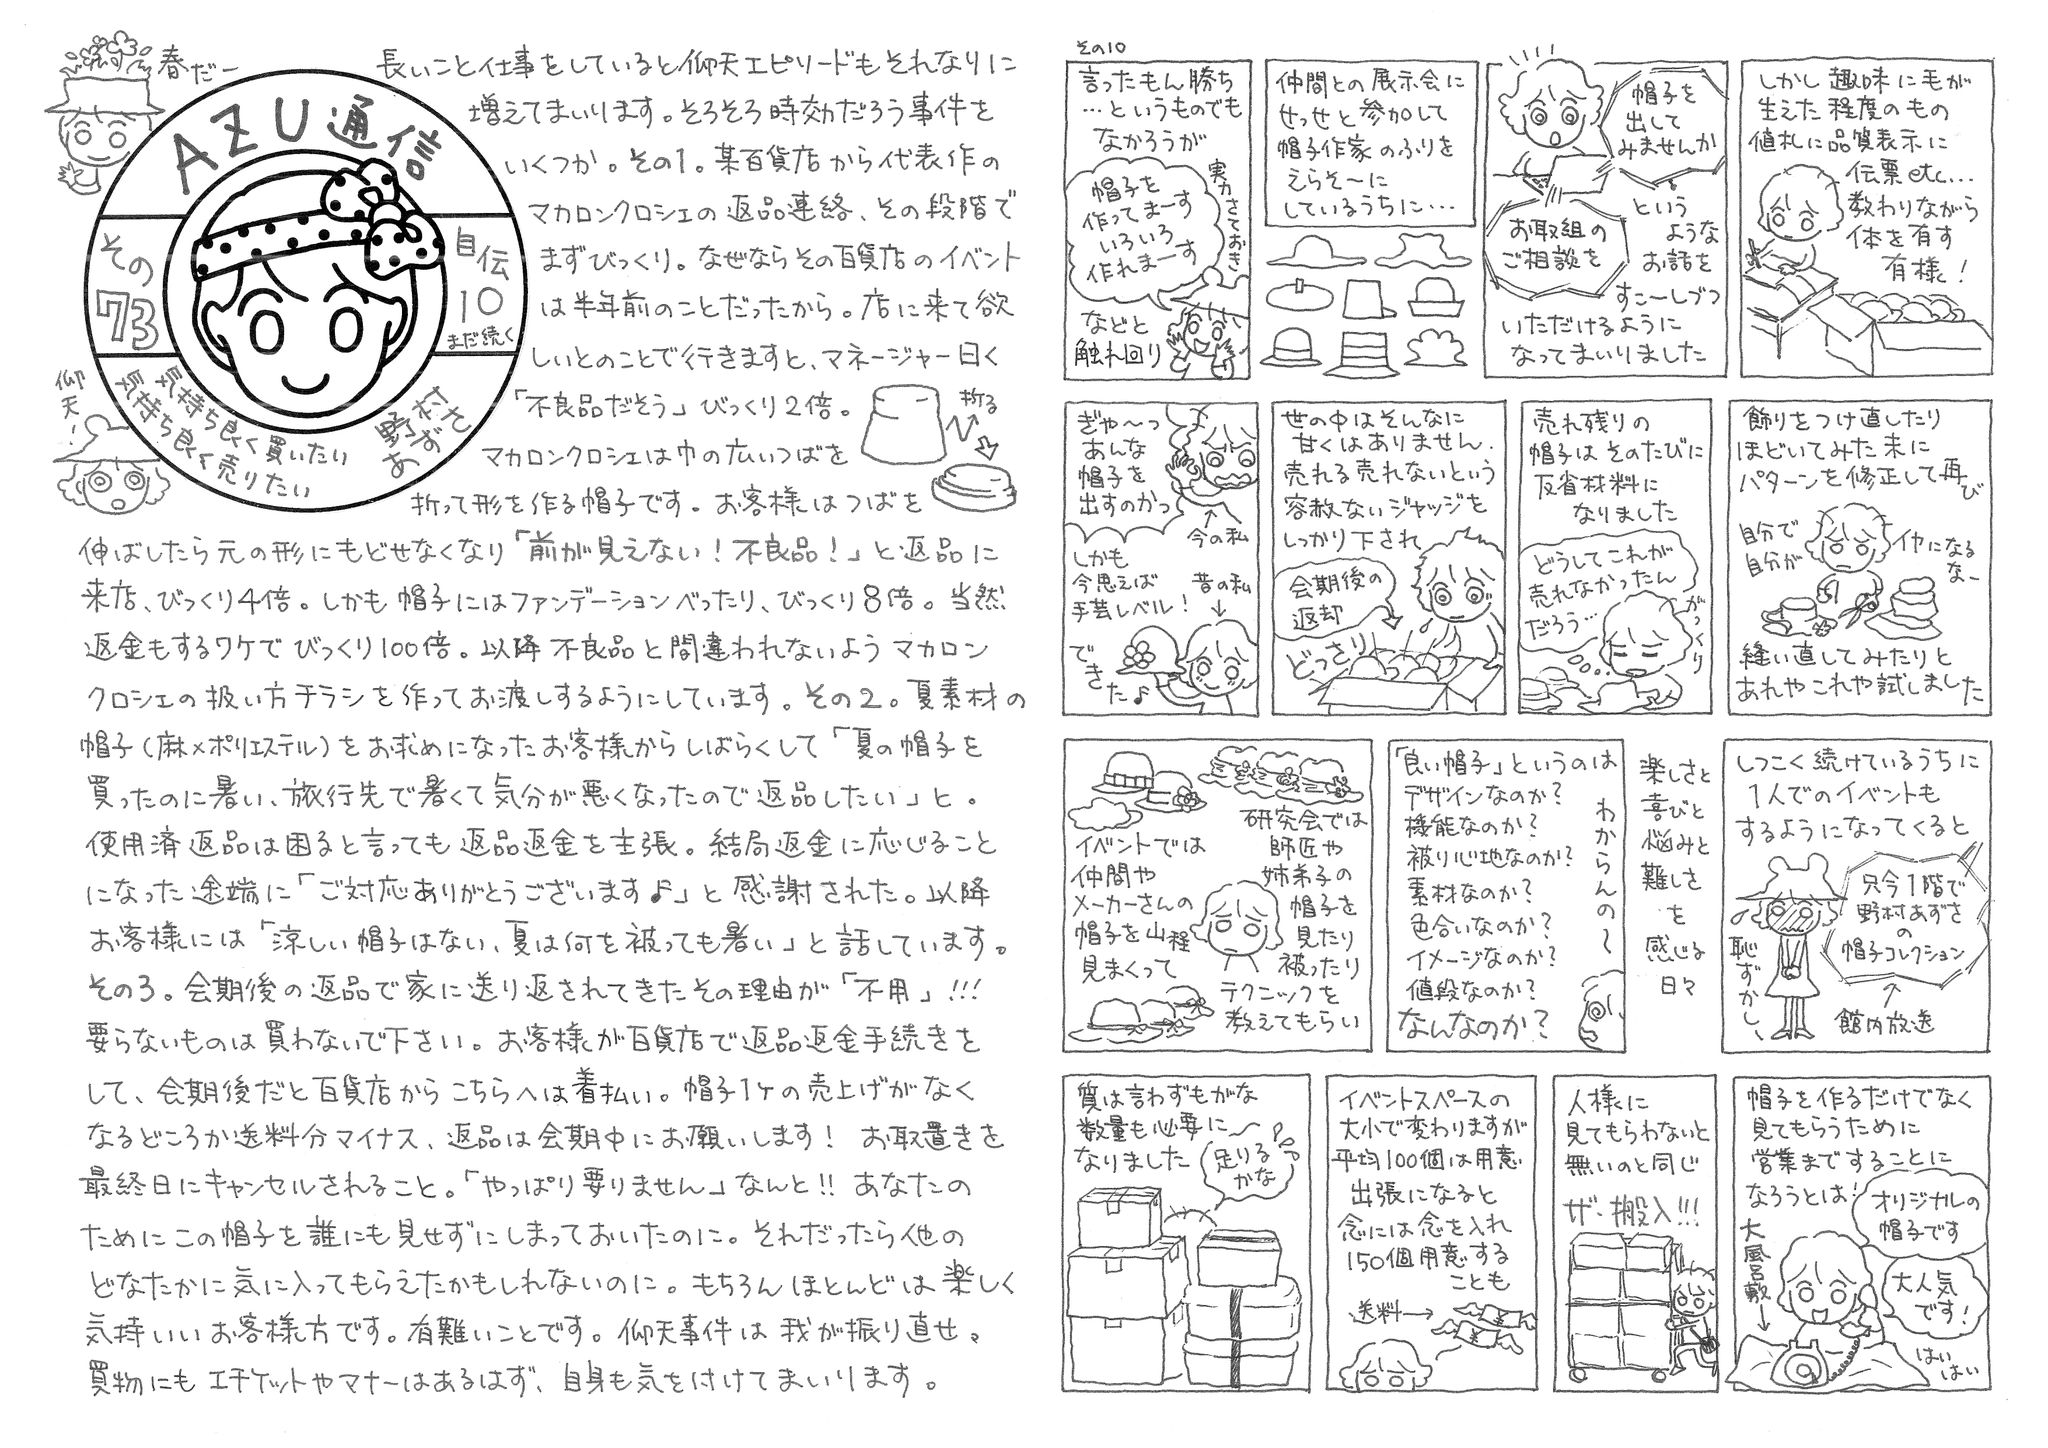 春だー
AZU通信
その
73
自伝
10
まだ続く
仰天!
気持ち良く買いたい
気持ち良く売りたい
野村
あずさ
長いこと仕事をしていると仰天エピソードもそれなりに
増えてまいります。そろそろ時効だろう事件を
いくつか。その1。某百貨店から代表作の
マカロンクロシェの返品連絡、その段階で
まずびっくり。なぜならその百貨店のイベント
は半年前のことだったから。店に来て欲
しいとのことで行きますと、マネージャー曰く
「不良品だそう」びっくり2倍。
折る
マカロンクロシェは巾の広いつばを
折って形を作る帽子です。お客様はつばを
伸ばしたら元の形にもどせなくなり「前が見えない!不良品!」と返品に
来店、びっくり4倍。しかも帽子にはファンデーションべったり、びっくり8倍。当然
返金もするワケでびっくり100倍。以降不良品と間違われないようマカロン
クロシェの扱い方チラシを作ってお渡しするようにしています。その2。夏素材の
帽子(麻×ポリエステル)をお求めになったお客様からしばらくして「夏の帽子を
買ったのに暑い、旅行先で暑くて気分が悪くなったので返品したい」と。
使用済返品は困ると言っても返品返金を主張。結局返金に応じること
になった途端に「ご対応ありがとうございます♪」と感謝された。以降
お客様には「涼しい帽子はない、夏は何を被っても暑い」と話しています。
その3。会期後の返品で家に送り返されてきたその理由が「不用」!!!
要らないものは買わないで下さい。お客様が百貨店で返品返金手続きを
して、会期後だと百貨店からこちらへは着払い。帽子1ヶの売上げがなく
なるどころか送料分マイナス、返品は会期中にお願いします! お取置きを
最終日にキャンセルされること。「やっぱり要りません」なんと!! あなたの
ためにこの帽子を誰にも見せずにしまっておいたのに。それだったら他の
どなたかに気に入ってもらえたかもしれないのに。もちろんほとんどは楽しく
気持いいお客様方です。有難いことです。仰天事件は我が振り直せ。
買物にもエチケットやマナーはあるはず、自身も気を付けてまいります。
その10
言ったもん勝ち
…というものでも
なかろうが
実力さておき
帽子を
作ってまーす
いろいろ
作れまーす
などと
触れ回り
仲間との展示会に
せっせと参加して
帽子作家のふりを
えらそ〜に
しているうちに…
帽子を
出して
みませんか
お取組の
ご相談を
という
ような
お話を
すこーしづつ
いただけるように
なってまいりました
しかし趣味に毛が
生えた程度のもの
値札に品質表示に
伝票etc…
教わりながら
体を有す
有様!
ぎゃ〜っ
あんな
帽子を
出すのかっ
今の私
しかも
今思えば
手芸レベル!
昔の私
できた♪
世の中はそんなに
甘くはありません。
売れる売れないという
容赦ないジャッジを
しっかり下され
会期後の
返却
どっさり
売れ残りの
帽子はそのたびに
反省材料に
なりました
どうしてこれが
売れなかったん
だろう…
がっくり
飾りをつけ直したり
ほどいてみた末に
パターンを修正して再び
自分で
自分が
イヤになる
なー
縫い直してみたりと
あれやこれや試しました
イベントでは
仲間や
メーカーさんの
帽子を山程
見まくって
研究会では
師匠や
姉弟子の
帽子を
見たり
被ったり
テクニックを
教えてもらい
「良い帽子」というのは
デザインなのか?
機能なのか?
被り心地なのか?
素材なのか?
色合いなのか?
イメージなのか?
値段なのか?
なんなのか?
わからんの〜
楽しさと
喜びと
悩みと
難しさ
を
感じる
日々
しつこく続けているうちに
1人でのイベントも
するようになってくると
只今1階で
野村あずさ
の
帽子コレクション
館内放送
恥ずかしい
質は言わずもがな
数量も必要に〜
なりました
足りる
かな
イベントスペースの
大小で変わりますが
平均100個は用意
出張になると
念には念を入れ
150個用意する
ことも
送料→
人様に
見てもらわないと
無いのと同じ
ザ・搬入!!!
帽子を作るだけでなく
見てもらうために
営業まですることに
なろうとは!
オリジナルの
帽子です
大人気
です!
大風呂敷
はい
はい